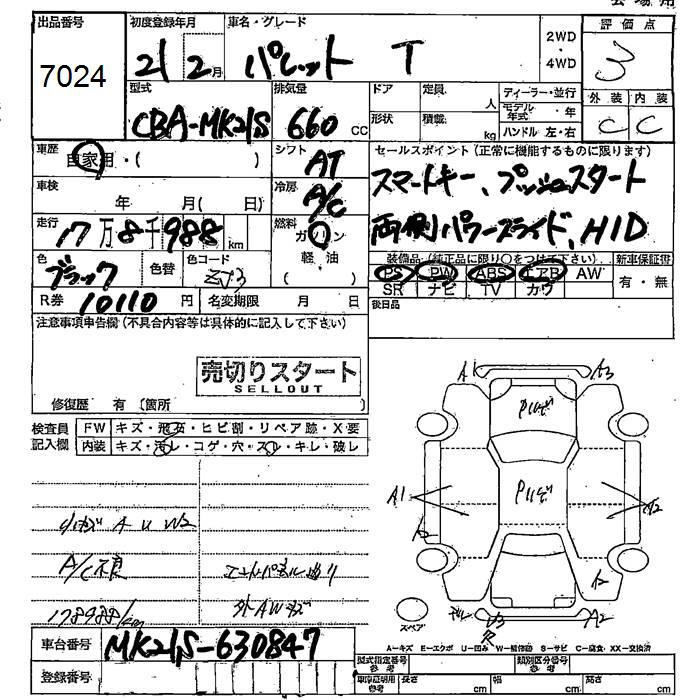 出品番号 初度登録年月 車名・グレード 評価点
7024 21年2月 パレット T 2WD・4WD 3
型式 排気量 ドア 定員 人 ディーラー・並行 外装 内装
CBA-MK21S 660 CC 形状 積載 kg モデル年式・年 ハンドル 左・右 C C
車歴 自家用・( ) シフト AT セールスポイント(正常に機能するものに限ります)
車検 年 月( 日) 冷房 A/C スマートキー、プッシュスタート
走行 17万8千988 km 燃料 ガソリン 軽油 両側パワースライド、HID
色 ブラック 色替 色コード ZJ3 装備品(純正品に限り○をつけて下さい) 新車保証書
PS PW ABS エアB AW 有・無
R券 10110円 名変期限 月 日 SR ナビ TV カワ
注意事項申告欄(不具合内容等は具体的に記入して下さい) 後日品
売切りスタート
SELLOUT
修復歴 有 (箇所 )
検査員 FW キズ・飛石・ヒビ割・リペア跡・X要
記入欄 内装 キズ・汚レ・コゲ・穴・スレ・キレ・破レ
A1 A3
A1 A2
A2
A U W2
A/C不良
178988/km 外AWキズ
スペア
A-キズ E-エクボ U-凹み W-補修跡 S-サビ C-腐食 XX-交換済
車台番号 MK21S-630847 型式指定番号 参考 類別区分番号 参考
登録番号 車庫証明用 参考 長さ cm 幅 cm 高さ cm